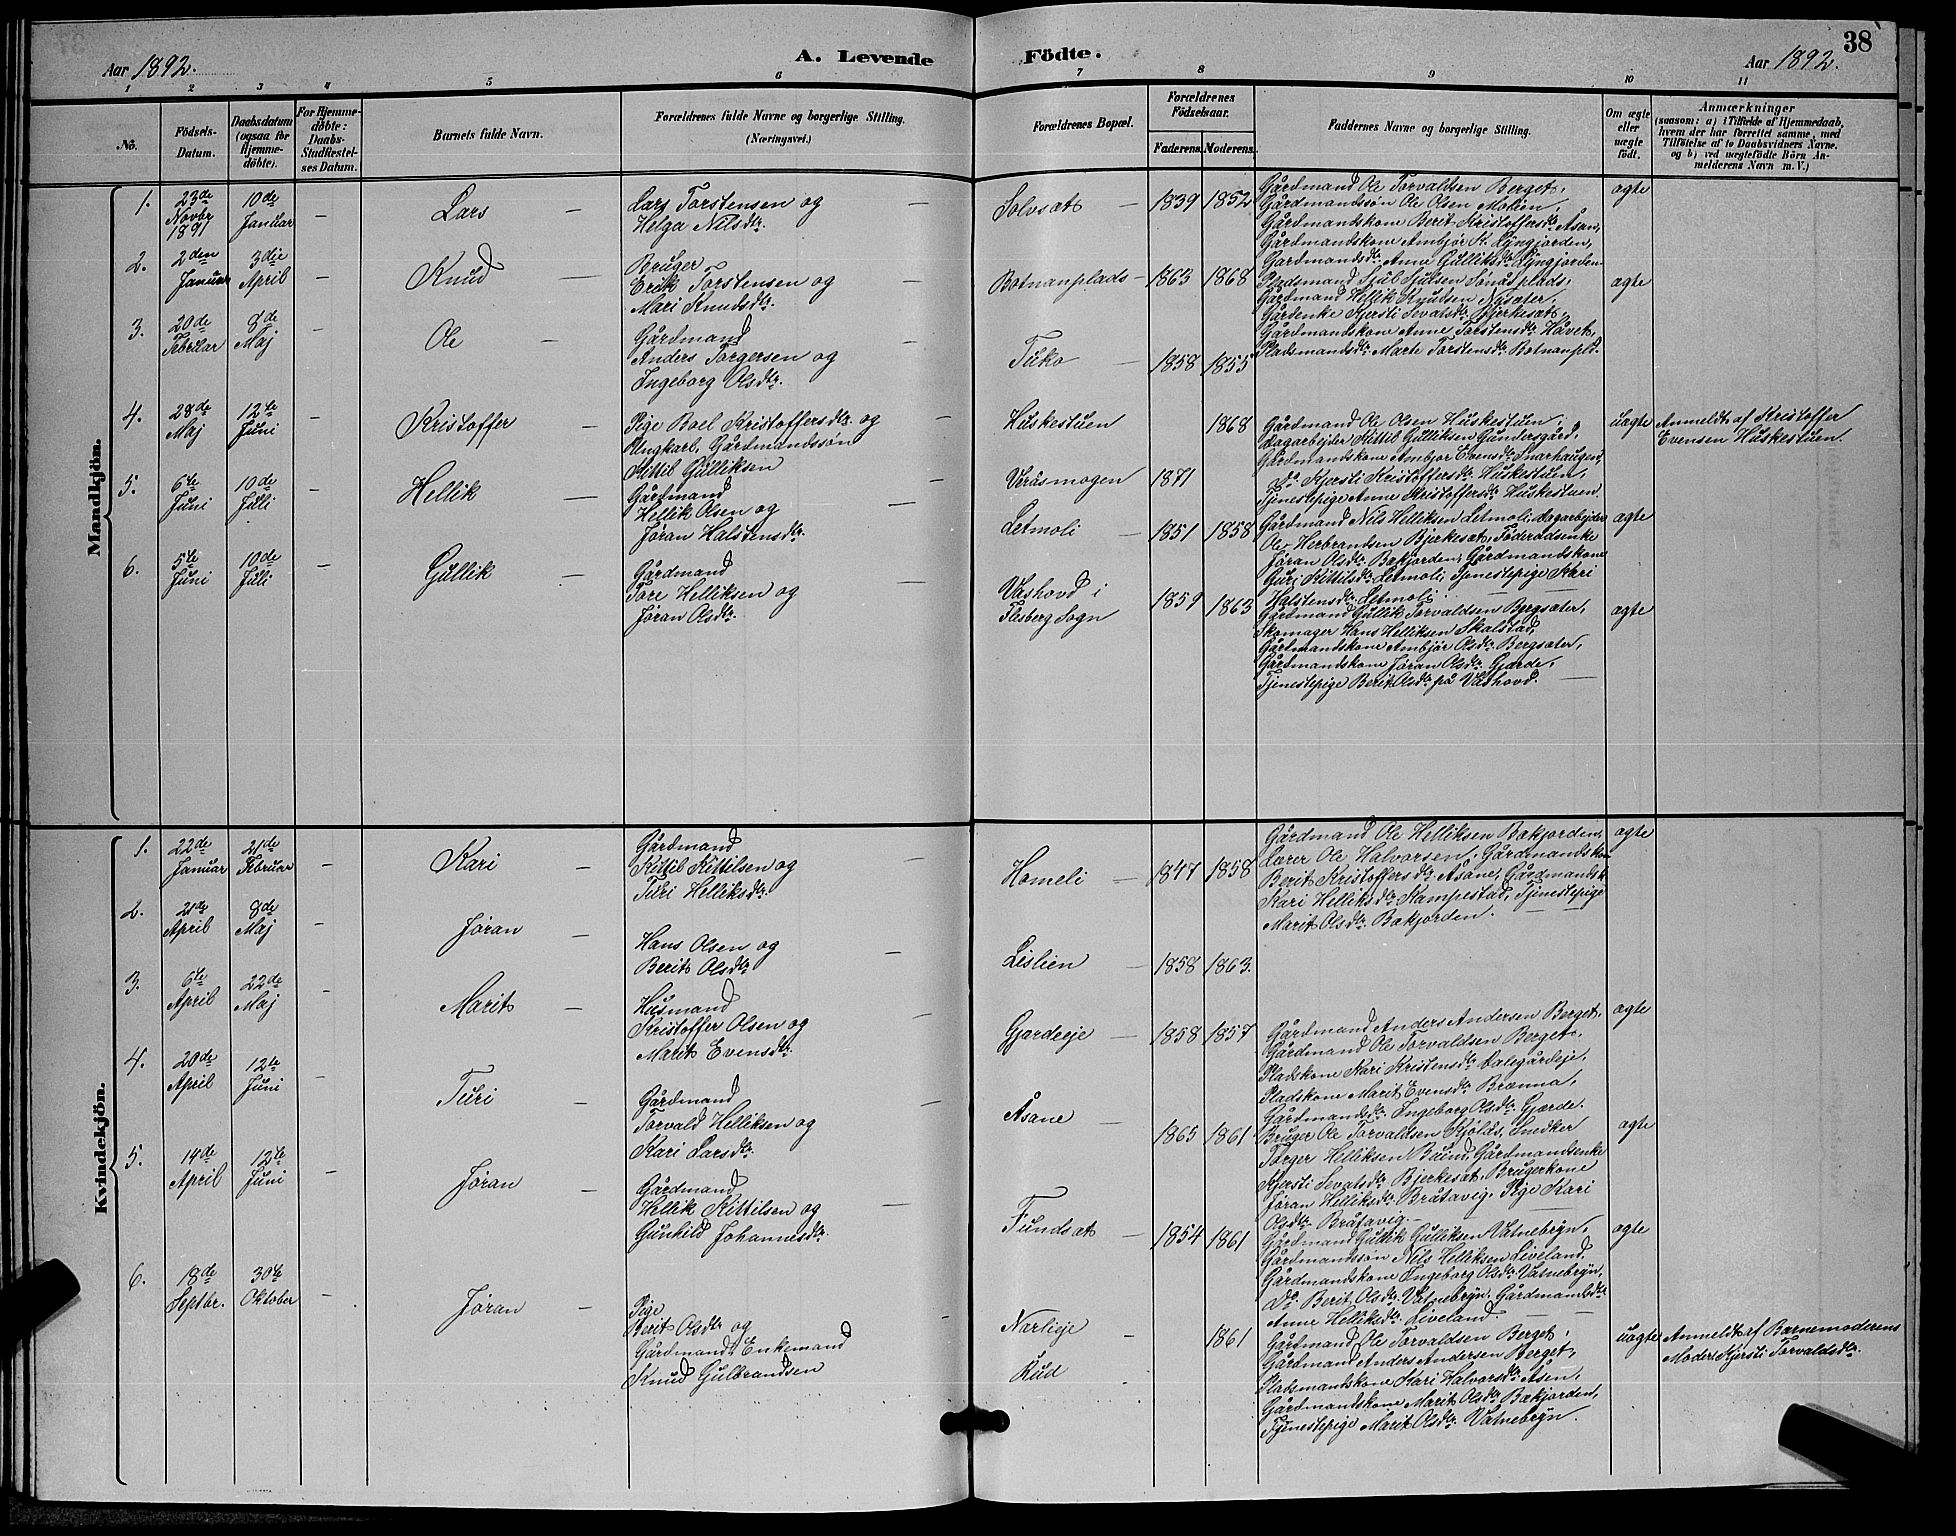 38
Aar 1892.
A. Levende
Födte.
Aar 1892.
1 2 3 4 5 6 7 8 9 10 11
No.
Födsels-
Datum.
Daabsdatum
(ogsaa for
Hjemme-
döbte).
For Hjemme-
döbte:
Daabs-
Stadfæstel-
ses Datum.
Barnets fulde Navn.
Forældrenes fulde Navne og borgerlige Stilling.
(Næringsvei.)
Forældrenes Bopæl.
Forældrenes
Födselsaar.
Faderens. Moderens.
Faddernes Navne og borgerlige Stilling.
Om ægte
eller
uægte
födt.
Anmærkninger
(saasom: a) i Tilfælde af Hjemmedaab,
hvem der har forrettet samme, med
Tilföielse af to Daabsvidners Navne.
og b) ved uægtefödte Börn An-
melderens Navn m. V.)
Mandkjön.
1.
23de
Novbr
1891
10de
Januar
–
Lars –
Lars Torstensen og –
Helga Nilsdtr.
Solvsæt –
1839 1852
Gårdmand Ole Torvaldsen Berget,
Gårdmandssøn Ole Olsen Molien,
Gårdmandskone Berit Kristoffersdtr Åsan,
Gårdmandskone Ambjør K. Lyngjorden,
Gardmandsdtr. Anne Gulliksdtr Lyngjorden
ægte
2.
2den
Januar
3die
April
–
Knud –
Bruger
Erik Torstensen og –
Mari Knudsdtr.
Botnanplads –
1863 1868
Gårdmand Hellik Knudsen Nysæter,
Gårdenke Kjersti Sevatsdtr. Bjerkesæt,
Gårdmandskone Anne Torstensdtr. Håvet,
Pladsmandsdtr. Marte Torstensdtr. Botnanpld.
ægte
3.
20de
Februar
8de
Maj
–
Ole –
Gårdmand
Anders Torgersen og
Ingeborg Olsdtr.
Tuko –
1858 1855
4.
28de
Maj
12te
Juni
–
Kristoffer –
Pige Boel Kristoffersdtr. og –
Ungkarl, Gårdmandssøn
Kittil Gulliksen
Huskestuen
Veråsmogen
1871
1868
Gårdmand Ole Olsen Huskestuen,
Dagarbejder Kittil Gulliksen Gundersgård,
Gårdmandskone Ambjør Evensdtr. Snarhaugend,
Do Kjersti Kristoffersdtr. Huskestuen,
Tjenestepige Anne Kristoffersdtr. Huskestuen.
uægte
Anmeldt af Kristoffer
Evensen Huskestuen.
5.
6te
Juni
10de
Juli
–
Hellik –
Gårdmand
Hellik Olsen og –
Jøran Halstensdtr.
Letmoli –
1851 1858
Gårdmand Nils Helliksen Letmoli, Dagarbejder
Ole Herbrandsen Bjerkesæt, Föderådsenke
Jöran Olsdtr. Bakjorden, Gårdmandskone
Guri Kittilsdtr. Letmoli, Tjenestepige Kari
Halstensdtr. Letmoli.
ægte
6.
5te
Juni
10de
Juli
–
Gullik –
Gårdmand
Tore Helliksen og –
Jøran Olsdtr.
Våshovd i
Flesberg Sogn
1859 1863
Gårdmand Gullik Torvaldsen Bergsæter,
Skomager Hans Helliksen Skalstad,
Gårdmandskone Ambjør Olsdtr. Bergsæter,
Gårdmandskone Jøran Olsdtr. Gjærde,
Tjenestepige Berit Olsdtr. på Våshovd. –
ægte
Kvindekjön.
1.
22de
Januar
21de
Februar
–
Kari –
Gårdmand
Kittil Kittilsen og –
Turi Helliksdtr.
Homeli –
1847 1858
Gårdmand Ole Helliksen Bakjorden,
Lærer Ole Halvorsen, Gårdmandskon
Berit Kristoffersdtr. Åsane, Gårdmandsk.
Kari Helliksdtr. Kampestad, Tjenestepige
Marit Olsdtr. Bakjorden. – –
ægte
2.
21de
April
8de
Maj
–
Jøran –
Hans Olsen og –
Berit Olsdtr.
Lislien –
1858 1863.
3.
6te
April
22de
Maj
–
Marit –
Husmand
Kristoffer Olsen og –
Marit Evensdtr.
Gjærdeeje –
1858 1857
Gårdmand Anders Andersen Berget,
Gårdmand Ole Torvaldsen Berget,
Pladskone Kari Kristensdtr. Dalegårdeje,
Pladskone Marit Evensdtr. Brænna,
Gårdmandsdtr. Ingeborg Olsdtr. Gjærde.
ægte
4.
20de
April
12te
Juni
–
Turi –
Gårdmand
Torvald Helliksen og –
Kari Larsdtr.
Åsane –
1865 1861
Bruger Ole Torvaldsen Kjölds, Snedker
Torger Helliksen Buind, Gårdmandsenke
Kjersti Sevatsdtr. Bjerkesæt, Brugerkone
Jöran Helliksdtr. Bråtavig, Pige Kari
Olsdtr. Bråtavig. –
ægte
5.
14de
April
12te
Juni
–
Jøran –
Gårdmand
Hellik Kittilsen og –
Gunhild Johannesdtr.
Fundsæt –
1854 1861
Gårdmand Gullik Gulliksen Vatnebryn,
Gårdmandssøn Nils Helliksen Liveland,
Gårdmandskone Ingeborg Olsdtr. Vatnebryn,
Do. Berit Olsdtr. Vatnebryn, Gårdmandsdtr.
Anne Helliksdtr. Liveland.
ægte
6.
18de
Septbr.
30te
Oktober
–
Jøran –
Pige
Berit Olsdtr og –
Gårdmand, Enkemand
Knud Gulbrandsen
Narlieje –
Rud –
1861
Gårdmand Ole Torvaldsen Berget,
Gårdmand Anders Andersen Berget,
Pladsmandskone Kari Halvorsdtr. Åsen,
Gårdmandskone Marit Olsdtr. Bakjorden,
Tjenestepige Marit Olsdtr. Vatnebryn.
uægte
Anmeldt af Barnemoderens
Moder Kjersti Torvaldsdtr.